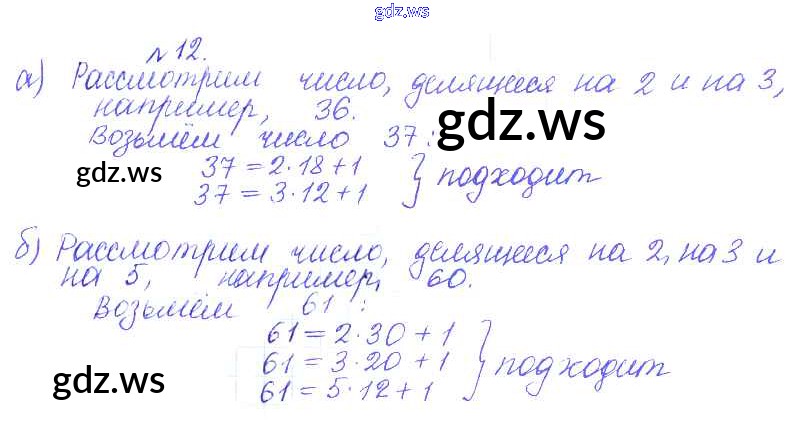 gdz.ws
№12.
а) Рассмотрим число, делящееся на 2 и на 3,
например, 36.
Возьмём число 37:
gdz.ws
gdz.ws
37 = 2·18+1
37 = 3·12+1 } подходит
б) Рассмотрим число, делящееся на 2, на 3 и
на 5, например, 60.
Возьмём 61:
61 = 2·30+1
61 = 3·20+1
61 = 5·12+1 } подходит
gdz.ws
gdz.ws